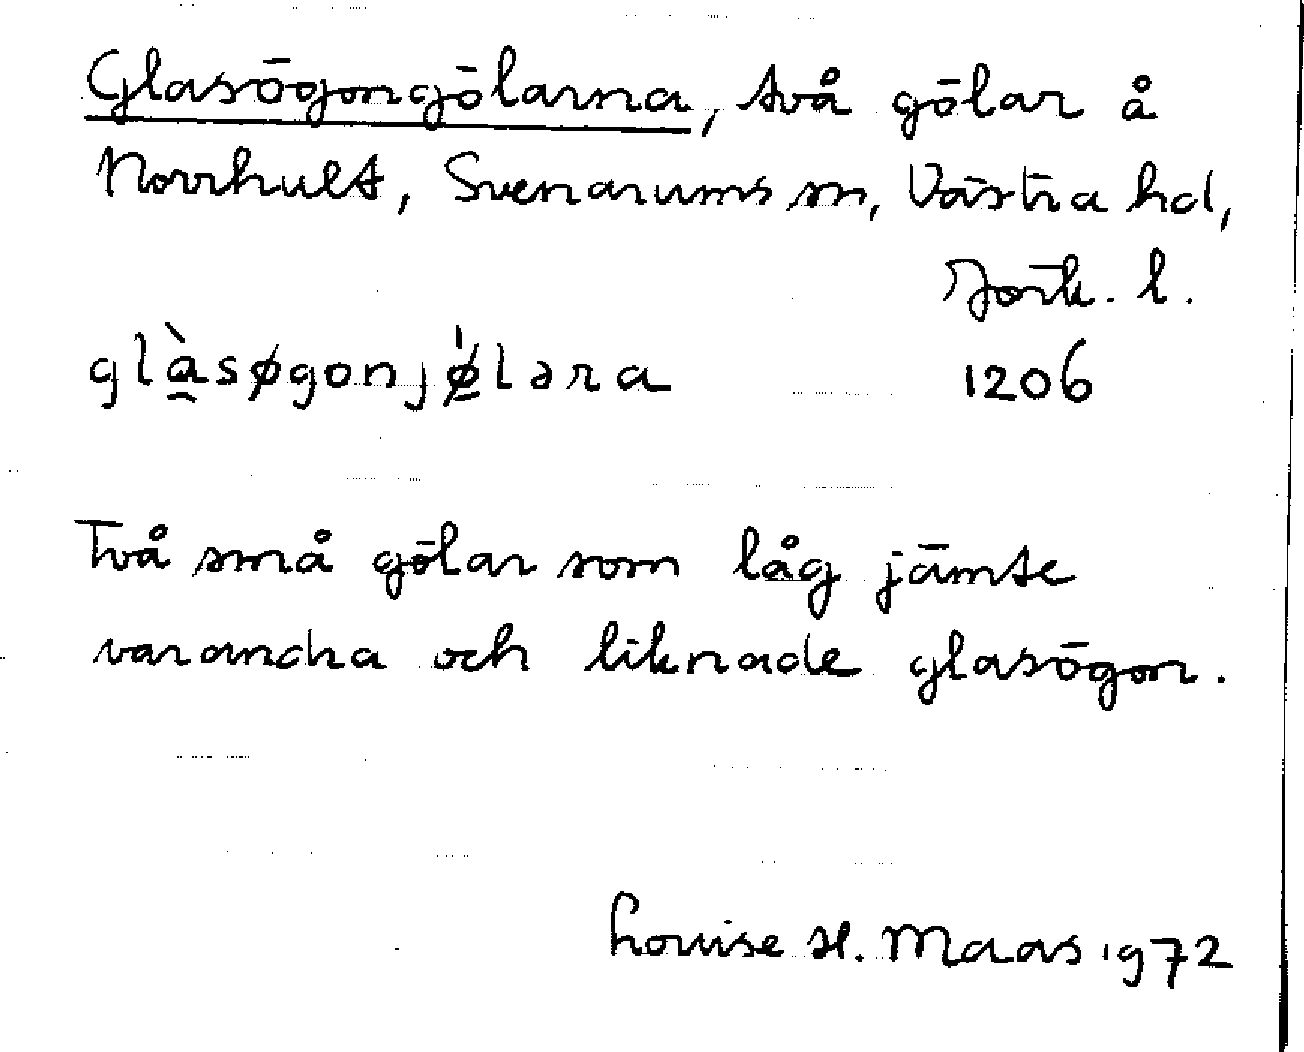 Glasögongölarna, två gölar å
Norrhult, Svenarums sn, Västra hd,
Jönk. l.
glàsøgonjǿləra 1206
Två små gölar som låg jämte
varandra och liknade glasögon.
Louise H. Maas 1972